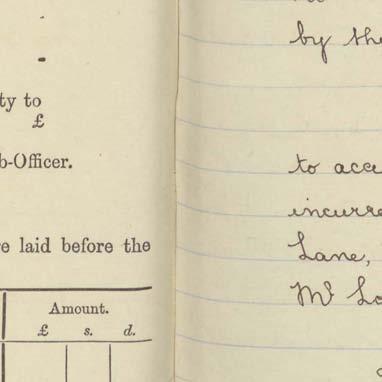 ty to
£
b-Officer.
e laid before the
Amount.
£ s. d.
by the
to acce
incurre
Lane,
Mr Lo